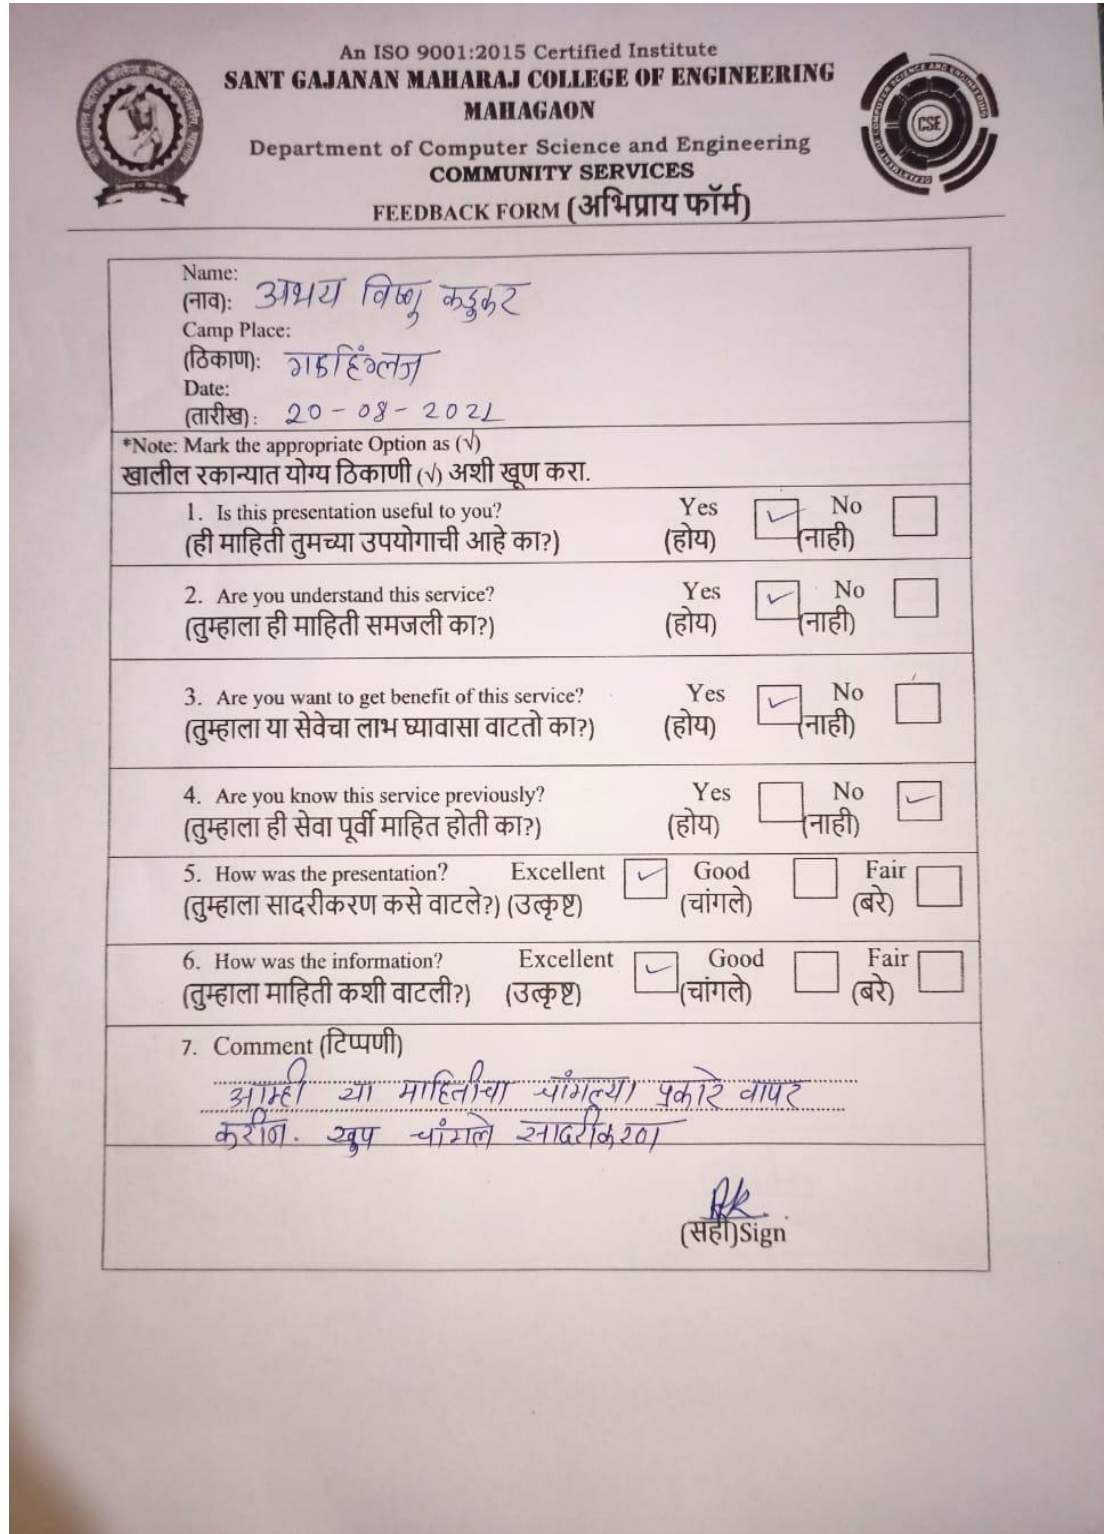 An ISO 9001:2015 Certified Institute
SANT GAJANAN MAHARAJ COLLEGE OF ENGINEERING
MAHAGAON
Department of Computer Science and Engineering
COMMUNITY SERVICES
FEEDBACK FORM (अभिप्राय फॉर्म)
CSE
Name:
(नाव): अभय विष्णु कडुकर
Camp Place:
(ठिकाण): गडहिंग्लज
Date:
(तारीख): 20-08-2021
*Note: Mark the appropriate Option as (√)
खालील रकान्यात योग्य ठिकाणी (√) अशी खूण करा.
1. Is this presentation useful to you? Yes ✓ No
(ही माहिती तुमच्या उपयोगाची आहे का?) (होय) (नाही)
2. Are you understand this service? Yes ✓ No
(तुम्हाला ही माहिती समजली का?) (होय) (नाही)
3. Are you want to get benefit of this service? Yes ✓ No
(तुम्हाला या सेवेचा लाभ घ्यावासा वाटतो का?) (होय) (नाही)
4. Are you know this service previously? Yes No ✓
(तुम्हाला ही सेवा पूर्वी माहित होती का?) (होय) (नाही)
5. How was the presentation? Excellent ✓ Good Fair
(तुम्हाला सादरीकरण कसे वाटले?) (उत्कृष्ट) (चांगले) (बरे)
6. How was the information? Excellent ✓ Good Fair
(तुम्हाला माहिती कशी वाटली?) (उत्कृष्ट) (चांगले) (बरे)
7. Comment (टिप्पणी)
आम्ही या माहितीचा चांगल्या प्रकारे वापर
करीन. खूप चांगले सादरीकरण
(सही)Sign